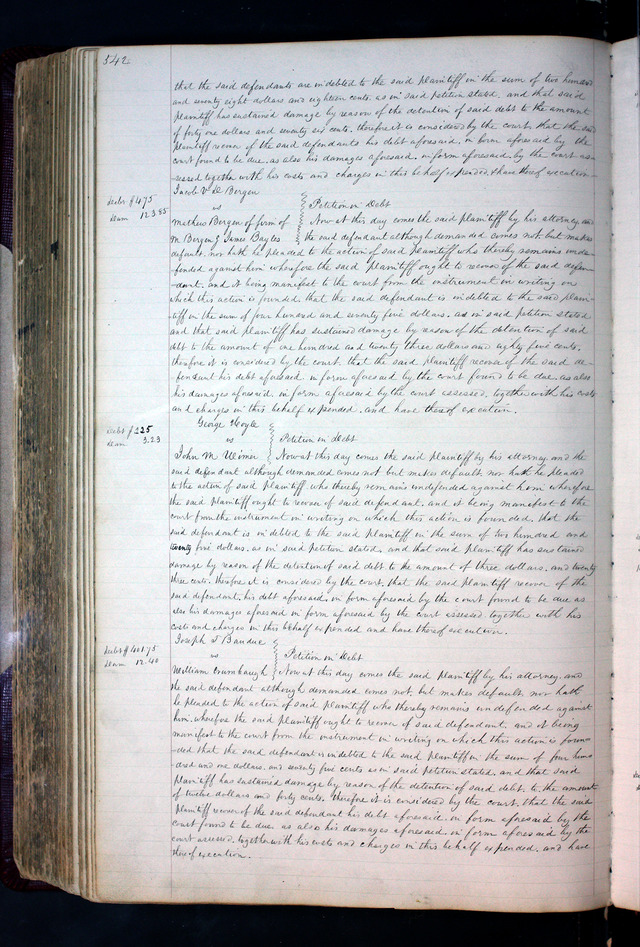 542
that the said defendants are indebted to the said plaintiff in the sum of two hundred
and seventy eight dollars and eighteen cents, as in said petition stated, and that said
plaintiff has sustained damage by reason of the detention of said debt to the amount
of forty one dollars and seventy six cents, therefore it is considered by the court that the said
plaintiff recover of the said defendants his debt aforesaid, in form aforesaid by the
court found to be due, as also his damages aforesaid, in form aforesaid by the court as-
sessed together with his costs and charges in this behalf expended & have thereof execution
Jacob V. D Bergen
Debt $475
Dam 123.85
vs Petition in Debt
Mathew Bergen of firm of Now at this day comes the said plaintiff by his attorney and
M Bergen & James Bayles the said defendant although demanded comes not but makes
default, nor hath he pleaded to the action of said plaintiff who thereby remains unde-
fended against him wherefore the said plaintiff ought to recover of the said defen-
-dant, and it being manifest to the court from the instrument in writing on
which this action is founded, that the said defendant is indebted to the said plain-
tiff in the sum of four hundred and seventy five dollars, as in said petition stated
and that said plaintiff has sustained damage by reason of the detention of said
debt to the amount of one hundred and twenty three dollars and eighty five cents,
therefore it is considered by the court, that the said plaintiff recover of the said de-
fendant his debt aforesaid, in form aforesaid by the court found to be due, as also
his damages aforesaid, in form aforesaid by the court assessed, together with his costs
and charges in this behalf expended, and have thereof execution.
George
Debt $225
Dam 3.23
vs Petition in Debt
John M. Now at this day comes the said plaintiff by his attorney and the
said defendant although demanded comes not but makes default, nor hath he pleaded
to the action of said plaintiff, who thereby remains undefended against him wherefore
the said plaintiff ought to recover of said defendant, and it being manifest to the
court from the instrument in writing on which this action is founded, that the
said defendant is indebted to the said plaintiff in the sum of two hundred and
twenty five dollars, as in said petition stated, and that said plaintiff has sustained
damage by reason of the detention of said debt to the amount of three dollars, and twenty
three cents, therefore it is considered by the court, that the said plaintiff recover of the
said defendant, his debt aforesaid, in form aforesaid by the court found to be due as
also his damages aforesaid in form aforesaid by the court assessed, together with his
costs and charges in this behalf expended and have thereof execution.
Joseph T Bandue
Debt $401.75
Dam 12.40
vs Petition in Debt
William Crumbaugh Now at this day comes the said plaintiff by his attorney, and
the said defendant although demanded comes not, but makes default nor hath
he pleaded to the action of said plaintiff who thereby remains undefended against
him, wherefore the said plaintiff ought to recover of said defendant, and it being
manifest to the court from the instrument in writing on which this action is foun-
-ded that the said defendant is indebted to the said plaintiff in the sum of four hun-
dred and one dollars, and seventy five cents as in said petition stated, and that said
plaintiff has sustained damage by reason of the detention of said debt, to the amount
of twelve dollars and forty cents, therefore it is considered by the court, that the said
plaintiff recover of the said defendant his debt aforesaid, in form aforesaid by the
court found to be due, as also his damages aforesaid, in form aforesaid by the
court assessed, together with his costs and charges in this behalf expended, and have
thereof execution.